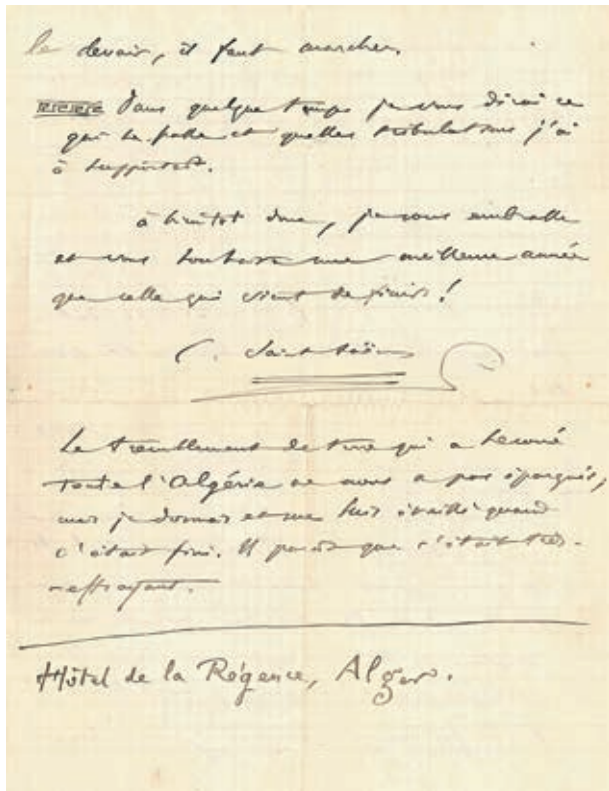 le devoir, il faut marcher.
Dans quelque temps je vous dirai ce
qui se passe et quelles tribulations j'ai
à supporter.
à bientôt donc, je vous embrasse
et vous souhaite une meilleure année
que celle qui vient de finir !
C. Saint-Saëns
Le tremblement de terre qui a secoué
toute l'Algérie ne nous a pas épargnés,
mais je dormais et me suis éveillé quand
c'était fini. Il paraît que c'était très-
effrayant.
Hôtel de la Régence, Alger.